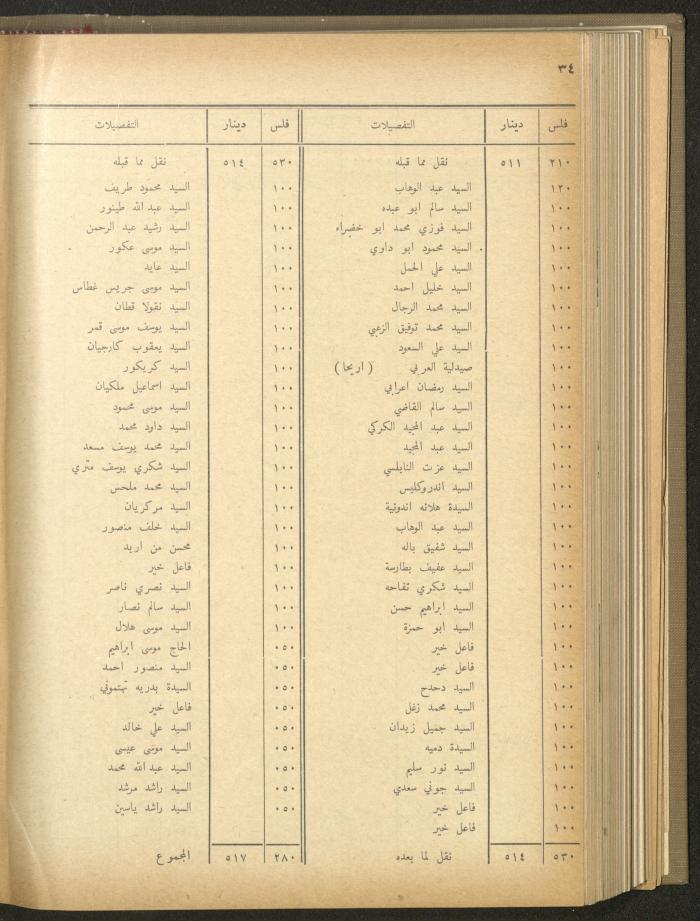 ٣٤
فلس دينار التفصيلات
٢١٠ ٥١١ نقل مما قبله
١٢٠ السيد عبد الوهاب
١٠٠ السيد سالم ابو عبده
١٠٠ السيد فوزي محمد ابو خضراء
١٠٠ السيد محمود ابو داوي
١٠٠ السيد علي الحمل
١٠٠ السيد خليل احمد
١٠٠ السيد محمد الرجال
١٠٠ السيد محمد توفيق الزعبي
١٠٠ السيد علي السعود
١٠٠ صيدلية العربي (اريحا)
١٠٠ السيد رمضان اعرابي
١٠٠ السيد سالم القاضي
١٠٠ السيد عبد المجيد الكركي
١٠٠ السيد عبد المجيد
١٠٠ السيد عزت النابلسي
١٠٠ السيد اندروكليس
١٠٠ السيدة هلانه اندونية
١٠٠ السيد عبد الوهاب
١٠٠ السيد شفيق باله
١٠٠ السيد عفيف بطارسة
١٠٠ السيد شكري تفاحه
١٠٠ السيد ابراهيم حسن
١٠٠ السيد ابو حمزة
١٠٠ فاعل خير
١٠٠ فاعل خير
١٠٠ السيد دحدح
١٠٠ السيد محمد زغل
١٠٠ السيد جميل زيدان
١٠٠ السيدة دميه
١٠٠ السيد نور سليم
١٠٠ السيد جوني سعدي
١٠٠ فاعل خير
١٠٠ فاعل خير
٥٣٠ ٥١٤ نقل لما بعده
فلس دينار التفصيلات
٥٣٠ ٥١٤ نقل مما قبله
١٠٠ السيد محمود طريف
١٠٠ السيد عبد الله طينور
١٠٠ السيد رشيد عبد الرحمن
١٠٠ السيد موسى عكور
١٠٠ السيد عايد
١٠٠ السيد موسى جريس غطاس
١٠٠ السيد نقولا قطان
١٠٠ السيد يوسف موسى قمر
١٠٠ السيد يعقوب كارجيان
١٠٠ السيد كريكور
١٠٠ السيد اسماعيل ملكيان
١٠٠ السيد موسى محمود
١٠٠ السيد داود محمد
١٠٠ السيد محمد يوسف مسعد
١٠٠ السيد شكري يوسف متري
١٠٠ السيد محمد ملحس
١٠٠ السيد مركريان
١٠٠ السيد خلف منصور
١٠٠ محسن من اربد
١٠٠ فاعل خير
١٠٠ السيد نصري ناصر
١٠٠ السيد سالم نصار
١٠٠ السيد موسى هلال
٠٥٠ الحاج موسى ابراهيم
٠٥٠ السيد منصور احمد
٠٥٠ السيدة بدريه تهتموني
٠٥٠ فاعل خير
٠٥٠ السيد علي خالد
٠٥٠ السيد موسى عيسى
٠٥٠ السيد عبد الله محمد
٠٥٠ السيد راشد مرشد
٠٥٠ السيد راشد ياسين
٢٨٠ ٥١٧ المجموع